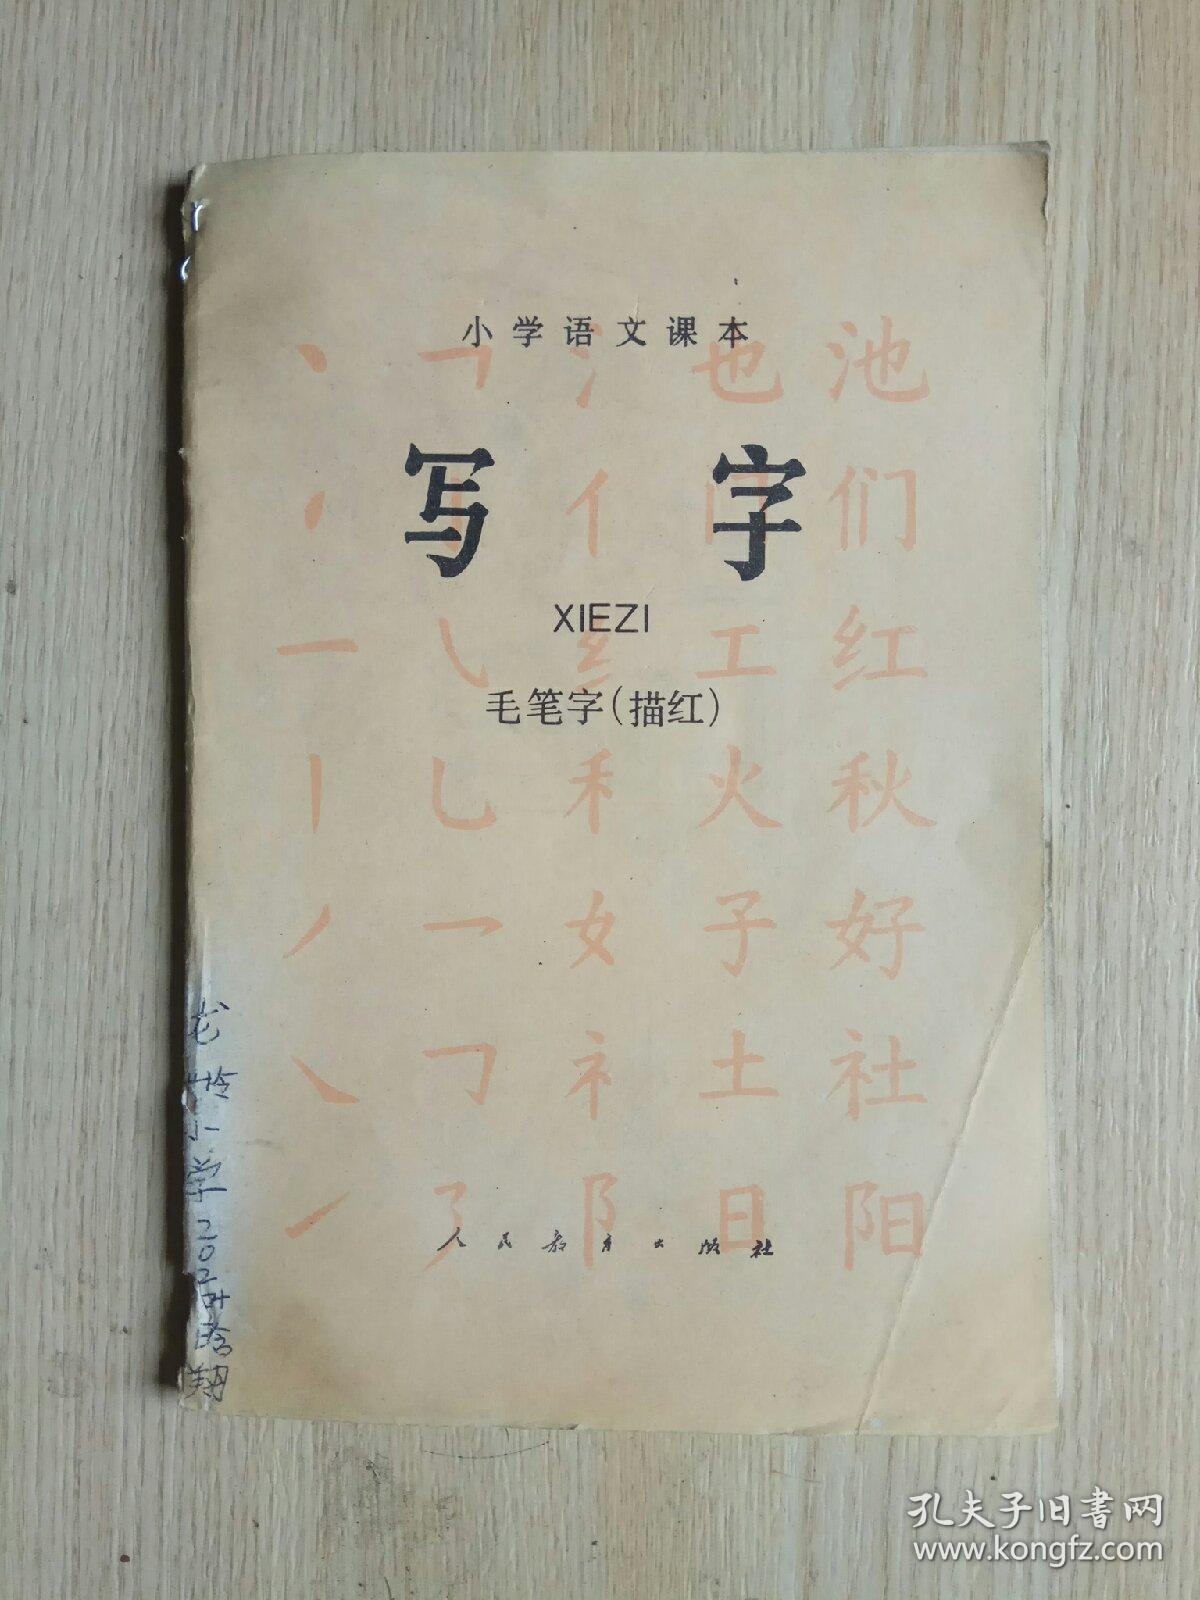 小学语文课本
丶 ㇇ 氵 也 池
写字
亻 门 们
XIEZI
一 ㇂ 纟 工 红
毛笔字(描红)
丨 乚 禾 火 秋
丿 乛 女 子 好
㇏ 𠃌 礻 土 社
㇀ ㇋ 阝 日 阳
人民教育出版社
小学202
翔
孔夫子旧书网
www.kongfz.com